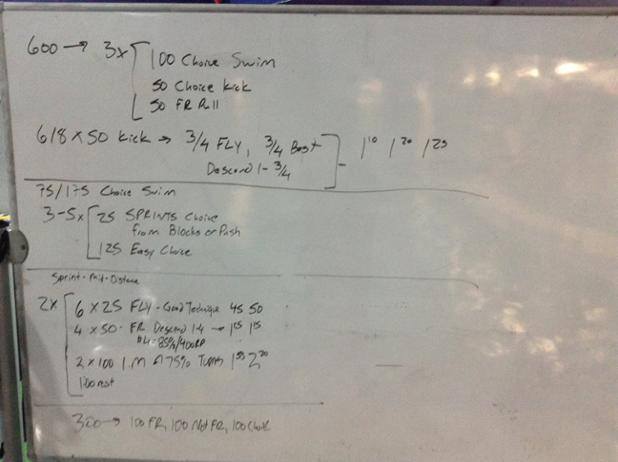 600 → 3x [ 100 Choice Swim
50 Choice Kick
50 FR Pull
6/8 x 50 Kick → 3/4 FLY, 3/4 Best ] - 1¹⁰ 1²⁰ 1²⁵
Descend 1-3/4
75/175 Choice Swim
3-5x [ 25 SPRINTS Choice
from Blocks or Push
125 Easy Choice
Sprint - Mid - Distance
2x [ 6 x 25 FLY - Good Technique 45 50
4 x 50 - FR Descend 1-4 →
#4 = 85%/400RP
2 x 100 I.M @ 75% Turns
100 rest
300 → 100 FR, 100 Not FR, 100 Choice